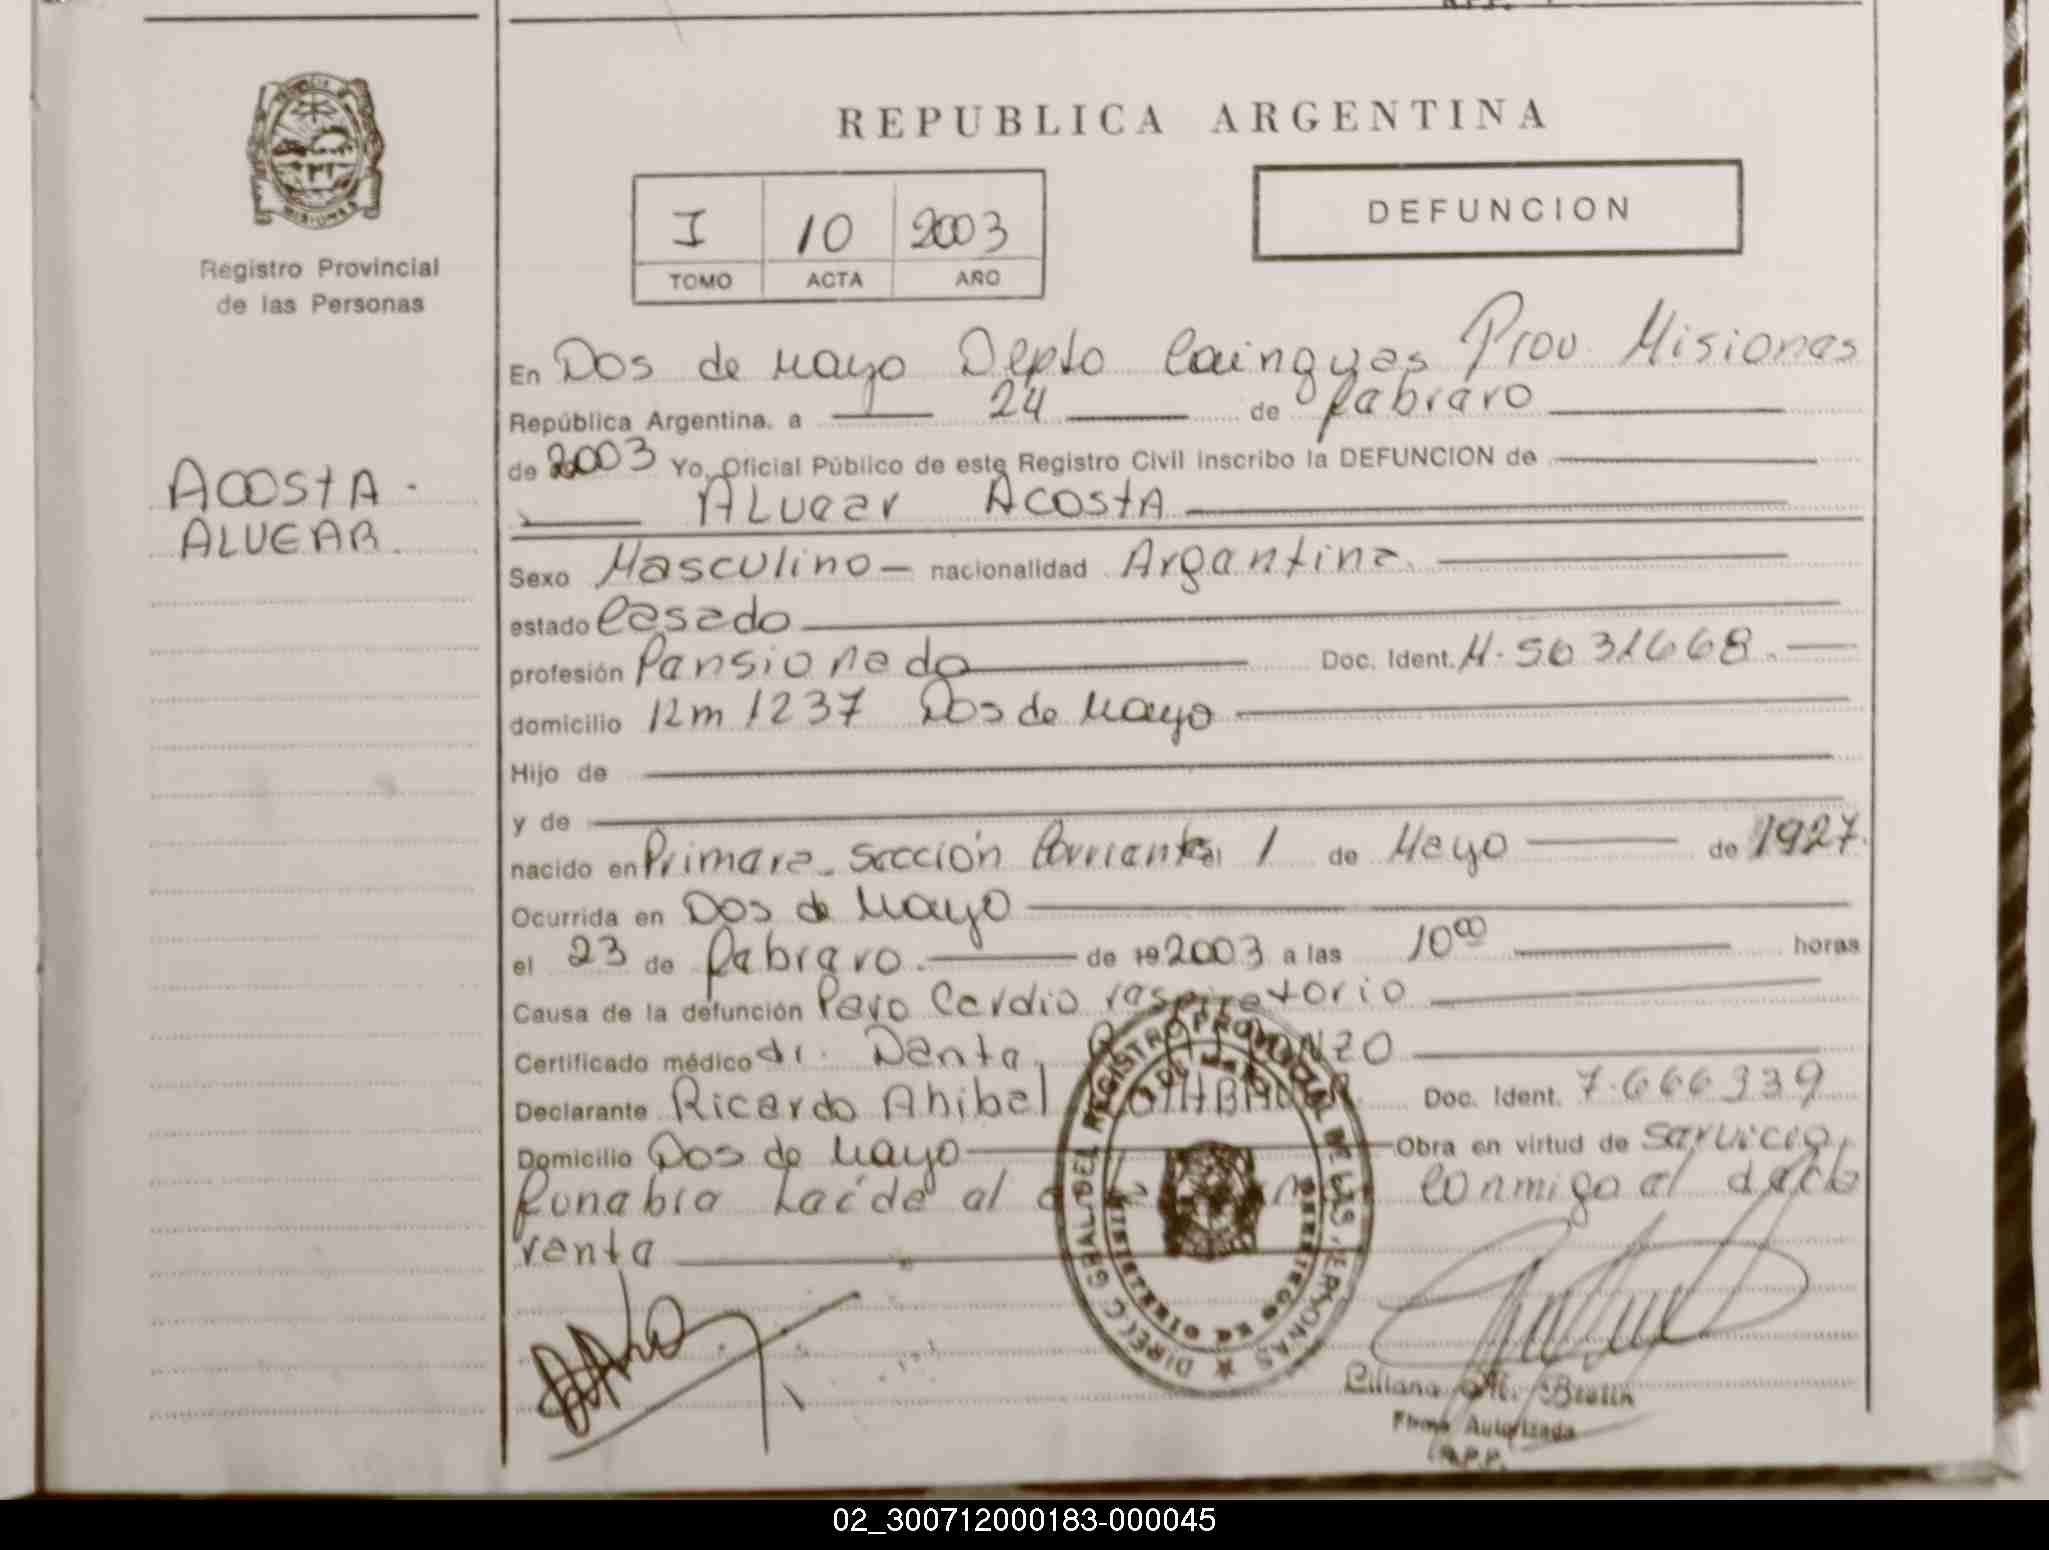 REPUBLICA ARGENTINA
DEFUNCION
I 10 2003
TOMO ACTA AÑO
MISIONES
Registro Provincial
de las Personas
ACOSTA
ALVEAR
En Dos de Mayo Depto Cainguas Prov. Misiones
República Argentina, a 24 de febrero
de 2003 Yo, Oficial Público de este Registro Civil inscribo la DEFUNCION de
ALvear ACostA
Sexo Masculino nacionalidad Argentina
estado Casado
profesión Pensionado Doc. Ident. M. 5631668
domicilio 12m 1237 Dos de Mayo
Hijo de
y de
nacido en Primera Sección Corrientes el 1 de Mayo de 1927
Ocurrida en Dos de Mayo
el 23 de febrero de 19 2003 a las 10 00 horas
Causa de la defunción Paro Cardio respiratorio
Certificado médico dr. Danta
Declarante Ricardo Anibal Doc. Ident. 7.666.939
Domicilio Dos de Mayo Obra en virtud de Servicio
funebre Leída al Conmigo el decla
rante
DIRECC. GRAL. DEL REGISTRO PROVINCIAL DE LAS PERSONAS
Liliana
Firma Autorizada
R.P.P.
02_300712000183-000045